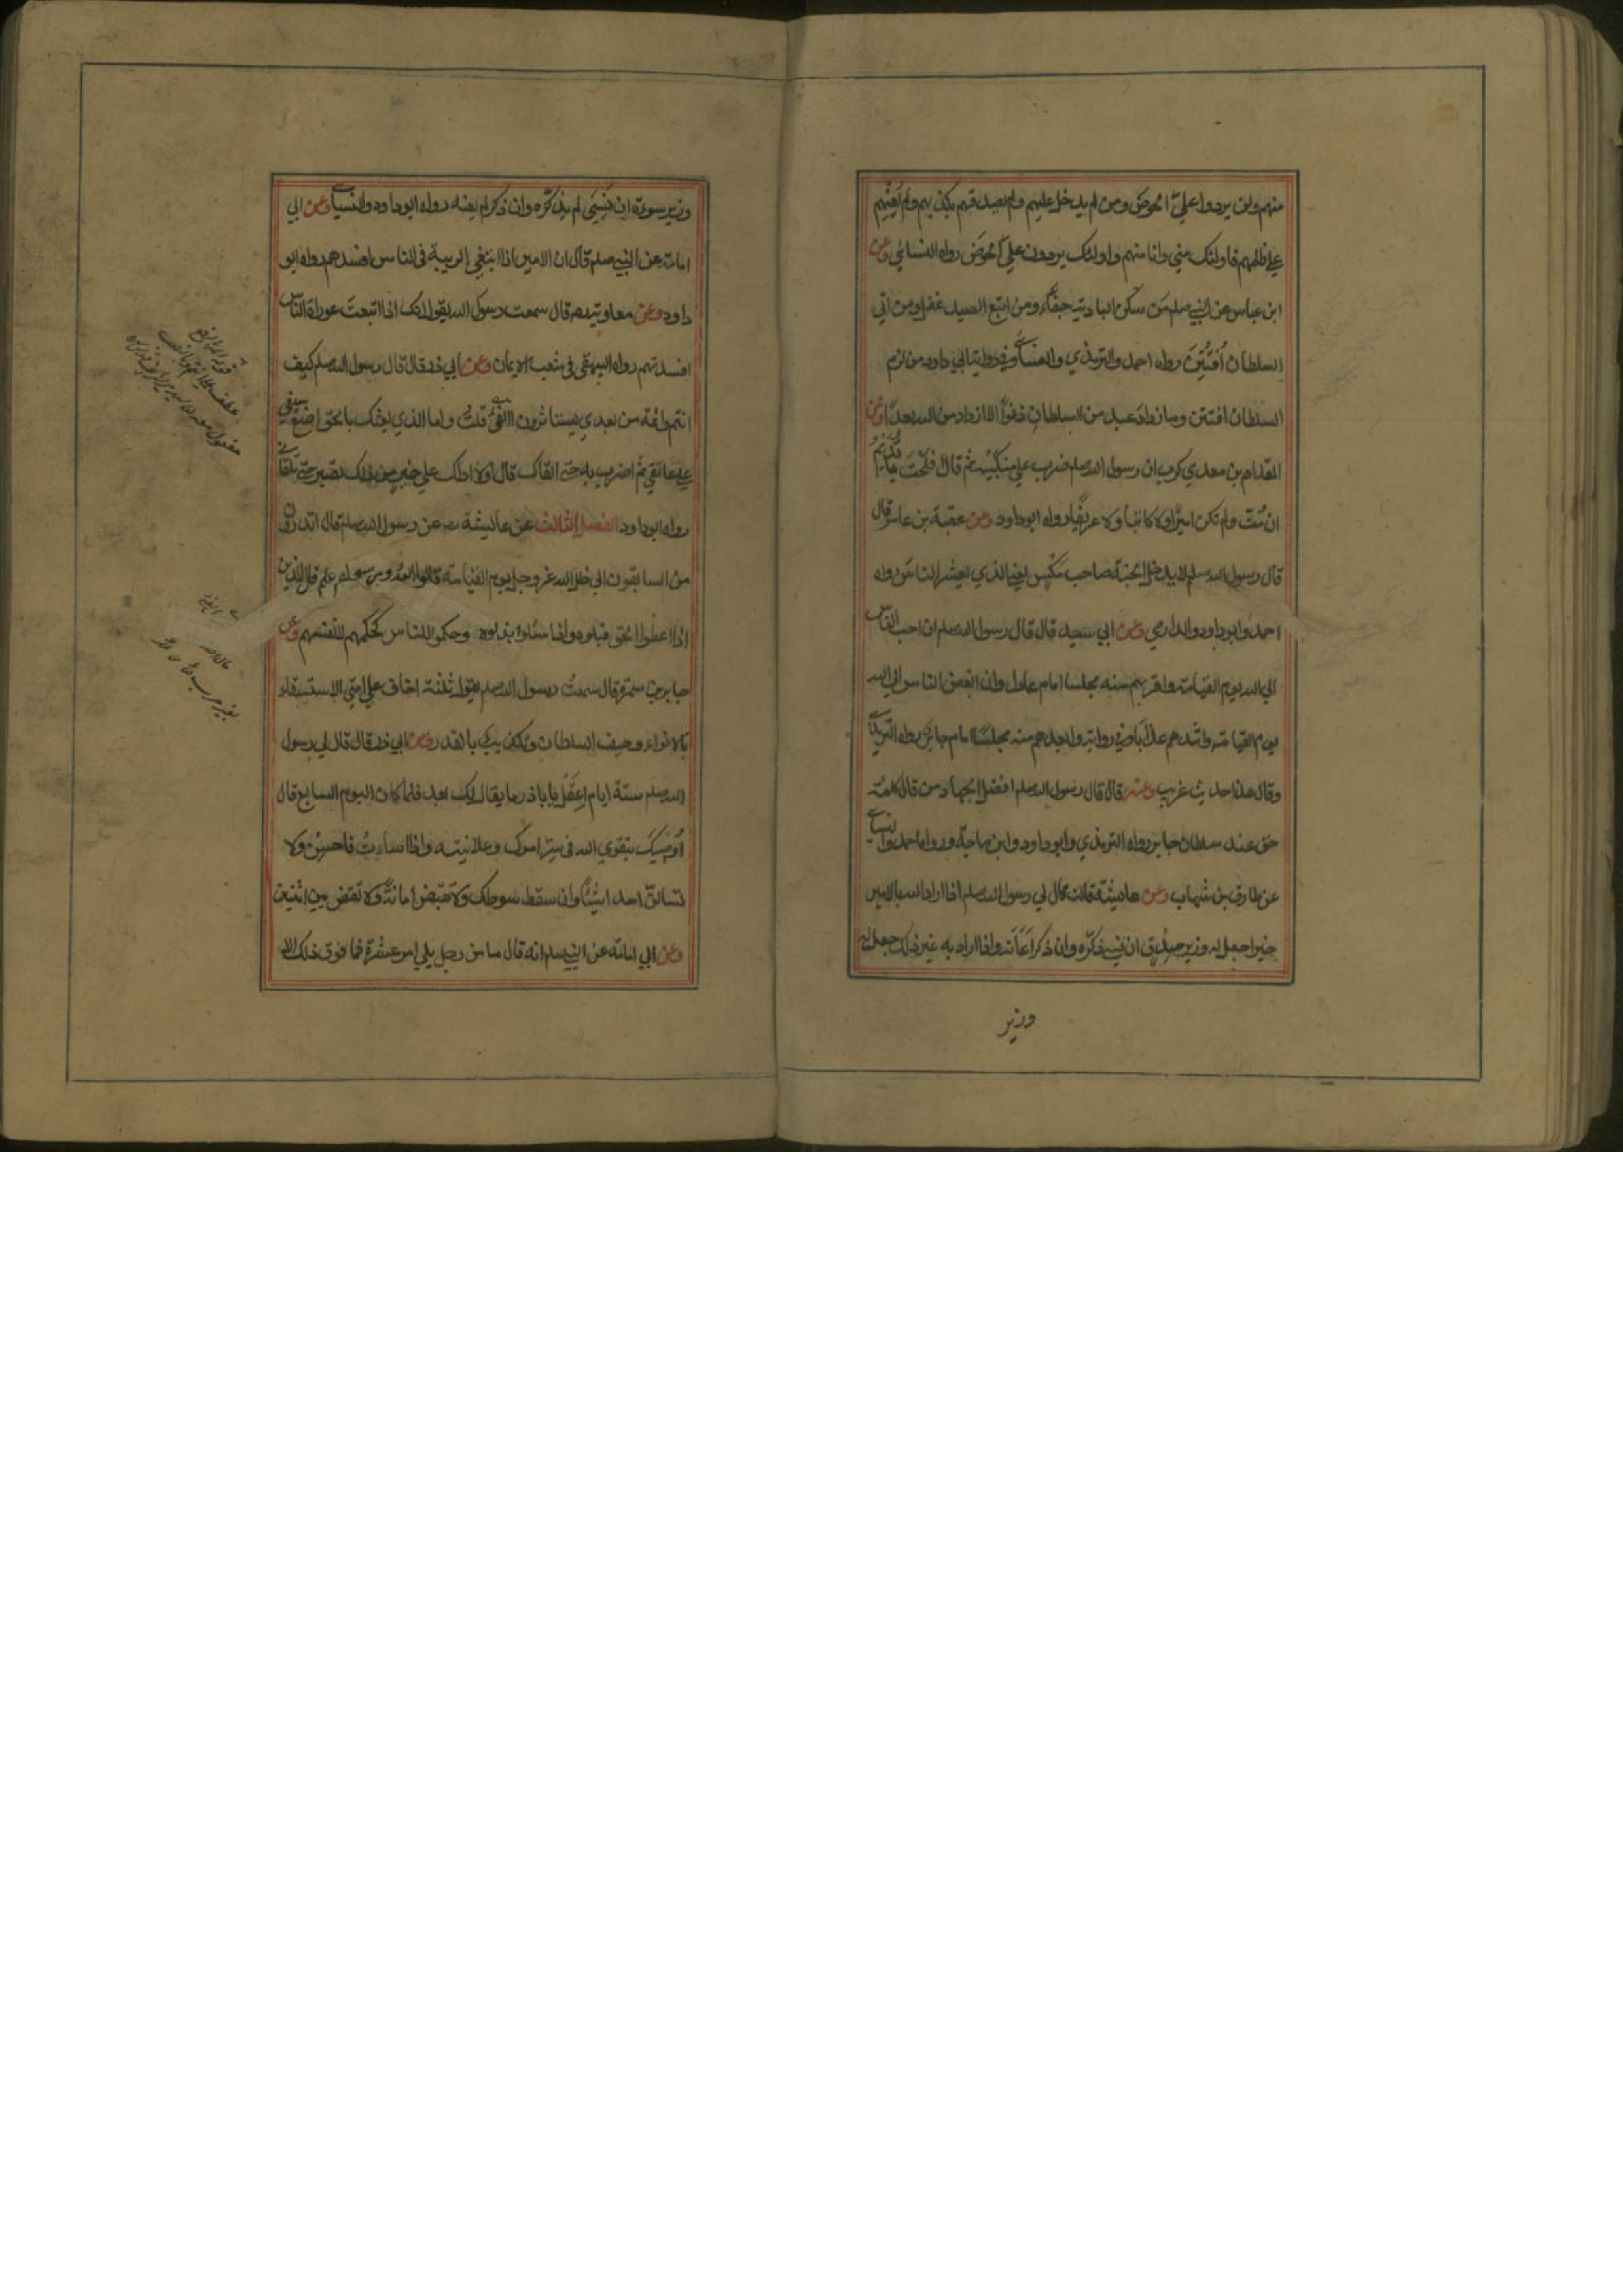 منهم ولن يردوا علي الحوض ومن لم يدخل عليهم ولم يصدقهم بكذبهم ولم يعنهم
علي ظلمهم فاولئك مني وانا منهم واولئك يردون علي الحوض رواه النسائي وعن
ابن عباس عن النبي صلم من سكن البادية جفاء ومن اتبع الصيد غفل ومن اتي
السلطان افتتن رواه احمد والترمذي والنسائي وفي رواية ابي داود من لزم
السلطان افتتن وما زداد عبد من السلطان دنوا الا ازداد من الله بعدا وعن
المقدام بن معدي كرب ان رسول الله صلم ضرب علي منكبيه ثم قال فلحت يا قديم
ان مت ولم تكن اميرا ولا كاتبا ولا عريفا رواه ابوداود وعن عقبة بن عامر قال
قال رسول الله صلم لا يدخل الجنة صاحب مكس يعني الذي يعشر الناس رواه
احمد وابوداود والدارمي وعن ابي سعيد قال قال رسول الله صلم ان احب الناس
الي الله يوم القيامة واقربهم منه مجلسا امام عادل وان ابغض الناس الي الله
يوم القيامة واشدهم عذابا وفي رواية وابعدهم منه مجلسا امام جاير رواه الترمذي
وقال هذا حديث غريب وعنه قال قال رسول الله صلم افضل الجهاد من قال كلمة
حق عند سلطان جاير رواه الترمذي وابوداود وابن ماجة ورواه احمد والنسائي
عن طارق بن شهاب وعن عايشة قالت قال لي رسول الله صلم اذا اراد الله بالامير
خيرا جعل له وزير صدق ان نسي ذكره وان ذكر اعانه واذا اراد به غير ذلك جعل له
وزير
وزير سوء ان نسي لم يذكره وان ذكر لم يعنه رواه ابوداود والنسائي وعن ابي
امامة عن النبي صلم قال ان الامير اذا ابتغي الريبة في الناس افسدهم رواه ابو
داود وعن معاوية قال سمعت رسول الله يقول انك اذا اتبعت عورات الناس
افسدتهم رواه البيهقي في شعب الايمان وعن ابي ذر قال قال رسول الله صلم كيف
انتم وائمة من بعدي يستاثرون الفئ قلت واما الذي بعثك بالحق اضع سيفي
علي عاتقي ثم اضرب به حتي القاك قال اولا ادلك علي خير من ذلك تصبر حتي تلقاني
رواه ابوداود الفصل الثالث عن عايشة عن رسول الله صلم قال اتدرون
من السابقون الي ظل الله عز وجل يوم القيامة قالوا الله ورسوله اعلم قال الذين
اذا اعطوا الحق قبلوه واذا سئلوا بذلوه وحكموا للناس كحكمهم لانفسهم وعن
جابر بن سمرة قال سمعت رسول الله صلم يقول ثلثة اخاف علي امتي الاستسقاء
بالانواء وحيف السلطان وتكذيب بالقدر وعن ابي ذر قال قال لي رسول
الله صلم ستة ايام اعقل يا اباذر ما يقال لك بعد فلما كان اليوم السابع قال
اوصيك بتقوي الله في سر امرك وعلانيته واذا اسات فاحسن ولا
تسالن احدا شيئا وان سقط سوطك ولا تقبض امانة ولا تقض بين اثنين
وعن ابي امامة عن النبي صلم انه قال ما من رجل يلي امر عشرة فما فوق ذلك الا